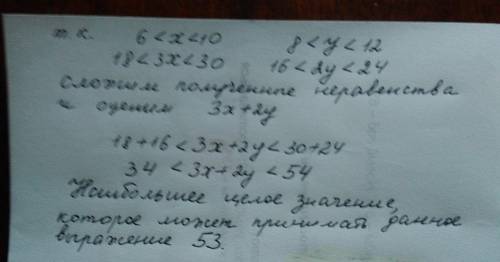 т.к. 6 < x < 10 8 < y < 12
18 < 3x < 30 16 < 2y < 24
сложим полученные неравенства
и оценим 3x+2y
18+16 < 3x+2y < 30+24
34 < 3x+2y < 54
Наибольшее целое значение,
которое может принимать данное
выражение 53.